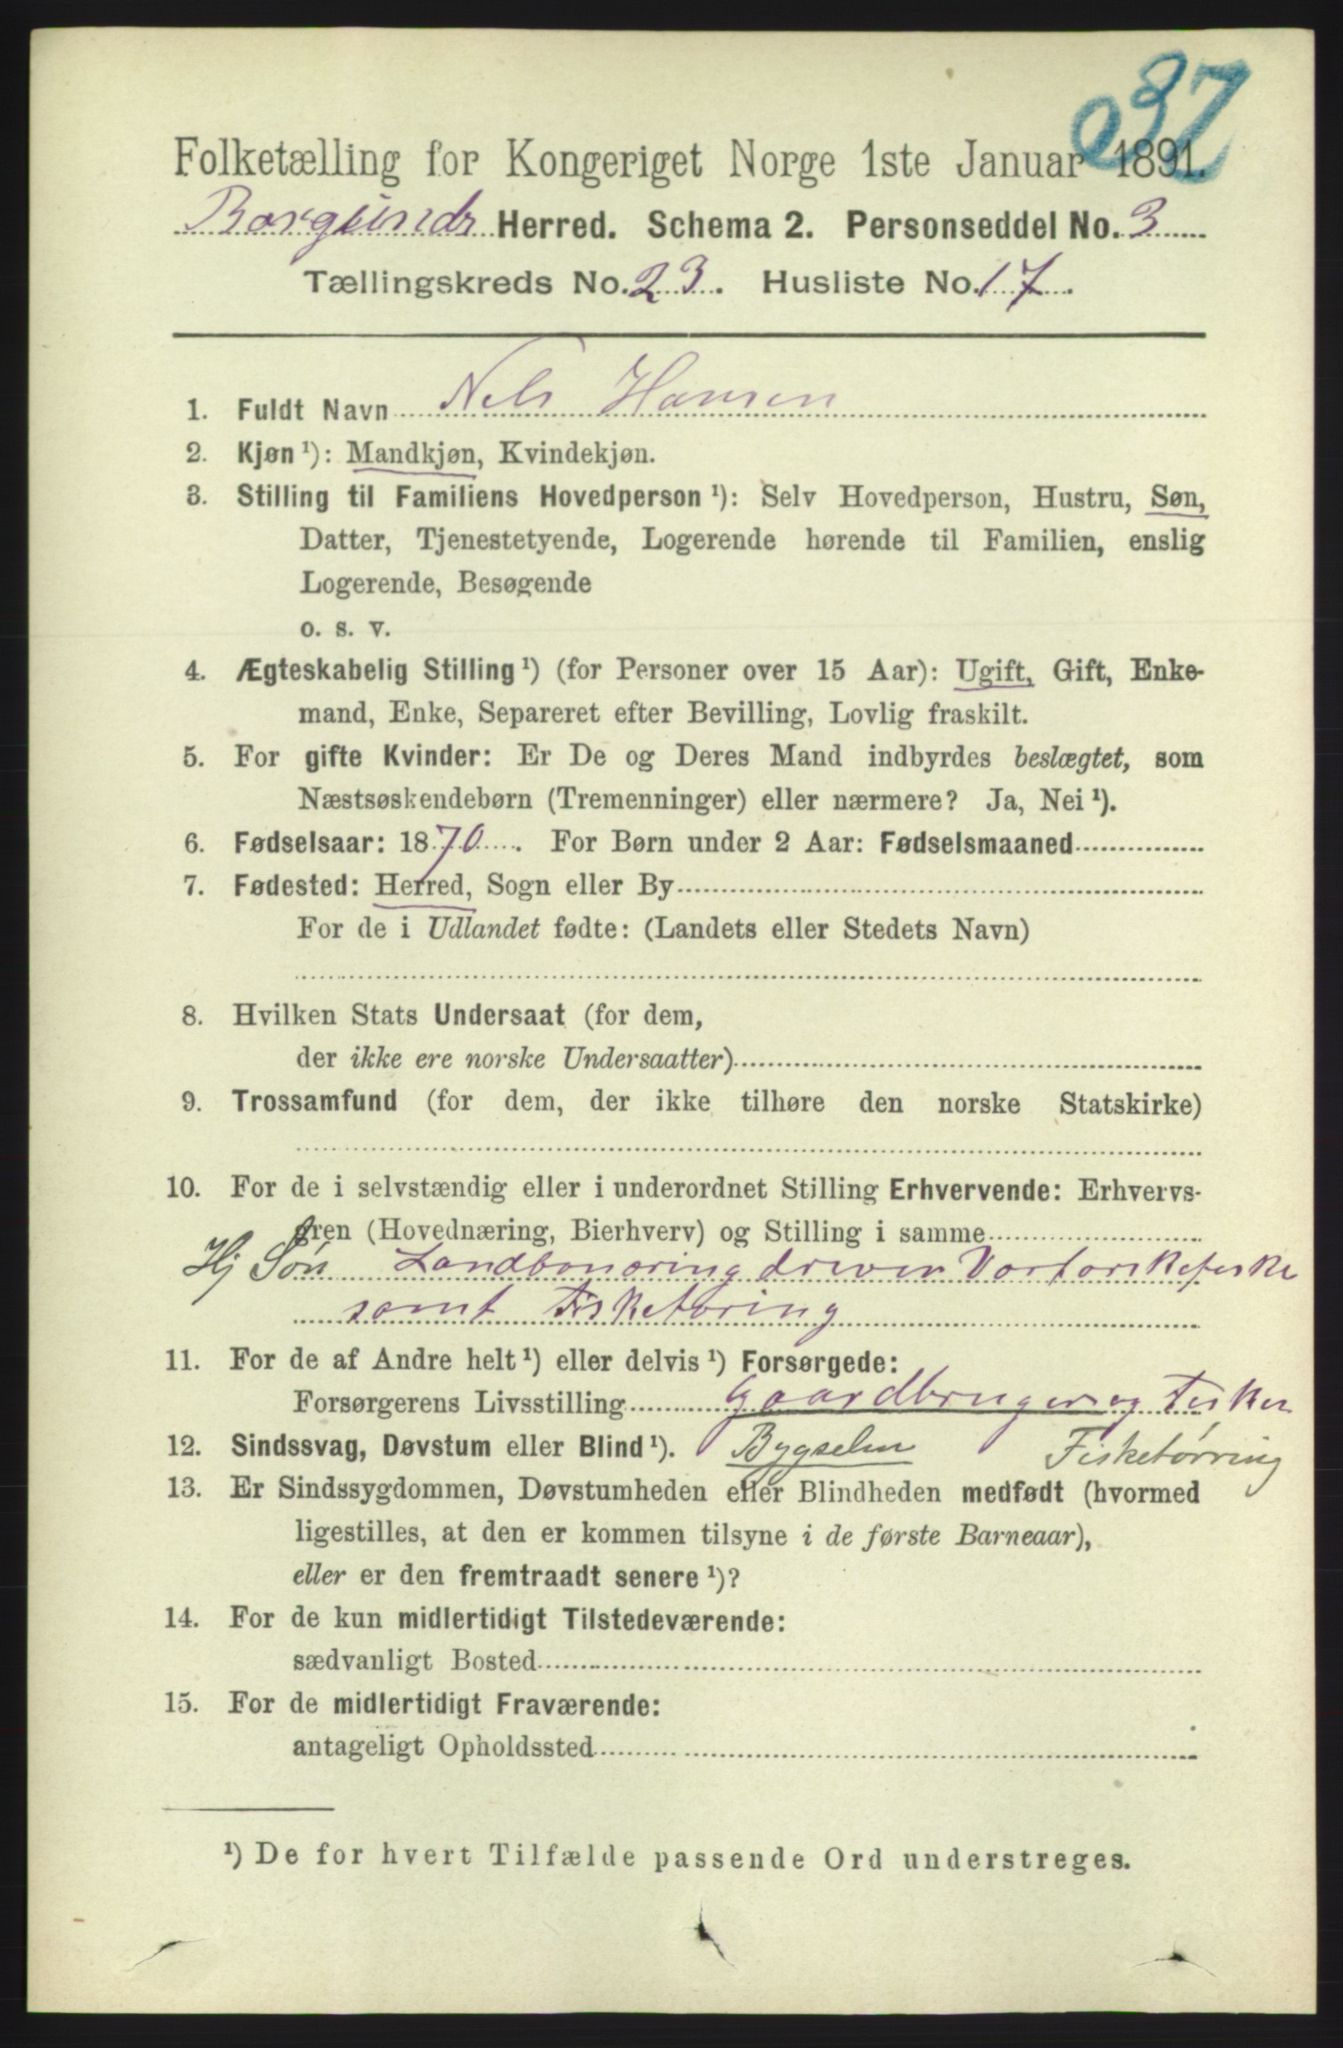 32
Folketælling for Kongeriget Norge 1ste Januar 1891.
Borgunds Herred. Schema 2. Personseddel No. 3
Tællingskreds No. 23. Husliste No. 17.
1. Fuldt Navn Nels Hansen
2. Kjøn ¹): Mandkjøn, Kvindekjøn.
3. Stilling til Familiens Hovedperson ¹): Selv Hovedperson, Hustru, Søn,
Datter, Tjenestetyende, Logerende hørende til Familien, enslig
Logerende, Besøgende
o. s. v.
4. Ægteskabelig Stilling ¹) (for Personer over 15 Aar): Ugift, Gift, Enke-
mand, Enke, Separeret efter Bevilling, Lovlig fraskilt.
5. For gifte Kvinder: Er De og Deres Mand indbyrdes beslægtet, som
Næstsøskendebørn (Tremenninger) eller nærmere? Ja, Nei ¹).
6. Fødselsaar: 1870. For Børn under 2 Aar: Fødselsmaaned
7. Fødested: Herred, Sogn eller By
For de i Udlandet fødte: (Landets eller Stedets Navn)
8. Hvilken Stats Undersaat (for dem,
der ikke ere norske Undersaatter)
9. Trossamfund (for dem, der ikke tilhøre den norske Statskirke)
10. For de i selvstændig eller i underordnet Stilling Erhvervende: Erhvervs-
gren (Hovednæring, Bierhverv) og Stilling i samme
Hj Søn Landbonæring drever Vartorskefiske
samt Fisketøring
11. For de af Andre helt ¹) eller delvis ¹) Forsørgede:
Forsørgerens Livsstilling Gaardbruger og Fisker
12. Sindssvag, Døvstum eller Blind ¹). Bygselm Fisketørring
13. Er Sindssygdommen, Døvstumheden eller Blindheden medfødt (hvormed
ligestilles, at den er kommen tilsyne i de første Barneaar),
eller er den fremtraadt senere ¹)?
14. For de kun midlertidigt Tilstedeværende:
sædvanligt Bosted
15. For de midlertidigt Fraværende:
antageligt Opholdssted
¹) De for hvert Tilfælde passende Ord understreges.